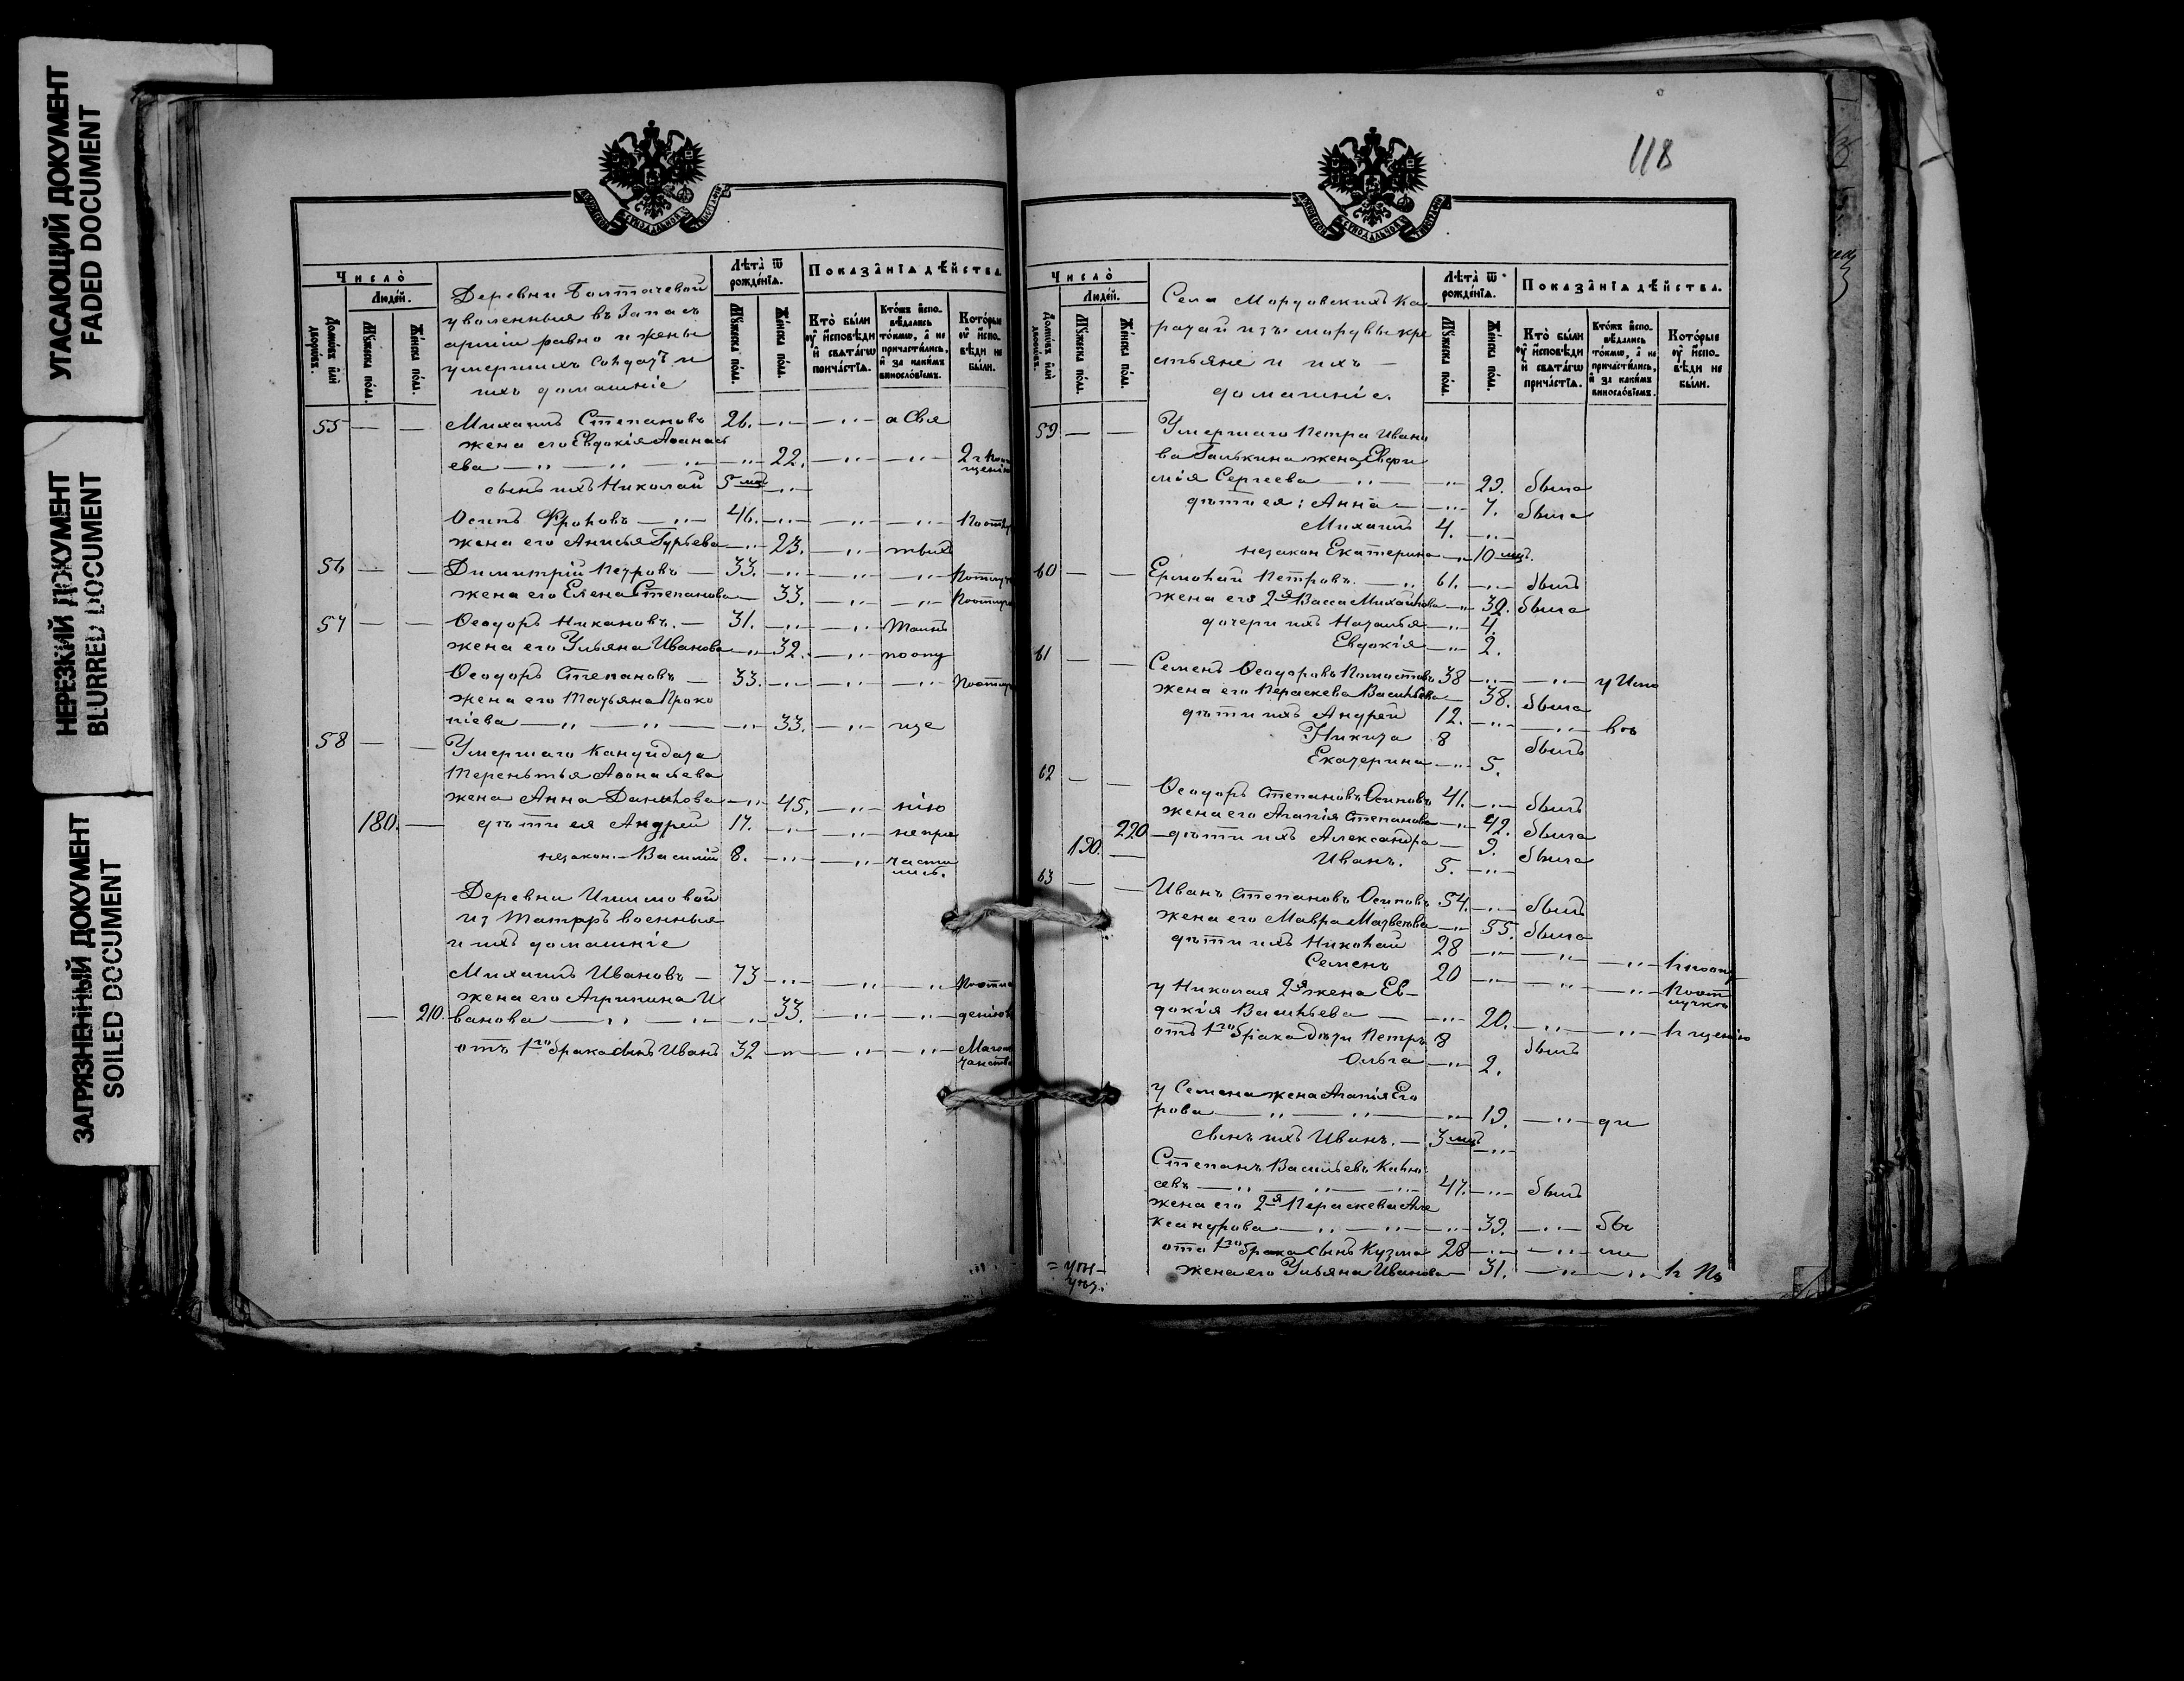 УГАСАЮЩИЙ ДОКУМЕНТ
FADED DOCUMENT
НЕРЕЗКИЙ ДОКУМЕНТ
BLURRED DOCUMENT
ЗАГРЯЗНЕННЫЙ ДОКУМЕНТ
SOILED DOCUMENT
Число̀
Людей.
Домѡвъ или дворѡвъ.
Мужеска полл.
Женска полл.
Деревни Болтачевой
уволенныя въ Запасъ
армiи равно и жены
умершихъ Солдатъ и
ихъ домашнiе
Лѣта ѿ рожденiѧ.
Мужеска полл.
Женска полл.
Показанiѧ дѣйства.
Кто были оу исповѣди и свѧтагѡ причастiѧ.
Ктожъ исповѣдались токмѡ, а не причастились, и за какимъ винословiемъ.
Которые оу исповѣди не были.
55 Михаилъ Степановъ 26. а Свя
жена его Евдокiя Аѳанась
ева 22.
сынъ ихъ Николай 5 мц
Осипъ Фроловъ 46.
жена его Анисья Гурьева 23. тыхъ
56 Димитрiй Петровъ 33.
жена его Елена Степанова 33.
57 Ѳеодоръ Никановъ. 31. Таинъ
жена его Ульяна Иванова 32. поопу
Ѳеодоръ Степановъ 33.
жена его Татьяна Проко
пiева 33. ще
58 Умершаго Кандидата
Терентья Аѳонасьева
жена Анна Данилова 45. нiю
180. дѣти ея Андрей 17. непри
незакон. Василiй 8. части
лись.
Деревни Ишимовой
из Татаръ военныя
и ихъ домашнiе
Михаилъ Ивановъ 73
жена его Агрипина И
210. ванова 33.
отъ 1го брака сынъ Иванъ 32
118
Число̀
Людей.
Домѡвъ или дворѡвъ.
Мужеска полл.
Женска полл.
Села Мордовскихъ Ка
ратай изъ мордвы кре
стьяне и ихъ
домашнiе.
Лѣта ѿ рожденiѧ.
Мужеска полл.
Женска полл.
Показанiѧ дѣйства.
Кто были оу исповѣди и свѧтагѡ причастiѧ.
Ктожъ исповѣдались токмѡ, а не причастились, и за какимъ винословiемъ.
Которые оу исповѣди не были.
59 Умершаго Петра Ивано
ва Галькина жена Евфи
мiя Сергеева 29. была
дѣти ея: Анна 7. была
Михаилъ 4.
незакон Екатерина 10 мц.
60 Ермолай Петровъ. 61. былъ
жена его 2я Васса Михайлова 39. была
дочери ихъ Наталья 4.
Евдокiя 2.
61 Семенъ Ѳеодоровъ 38 у Испо
жена его Параскева Васильева 38. была
дѣти ихъ Андрей 12.
Никита 8 былъ
Екатерина 5.
62 Ѳеодоръ Степановъ Осиповъ 41. былъ
жена его Агапiя Степанова 42. была
220 дѣти ихъ Александра 9. была
190. Иванъ. 5.
63 Иванъ Степановъ Осиповъ 54. былъ
жена его Мавра Матвеева 55. была
дѣти ихъ Николай 28
Семенъ 20
у Николая 2я жена Ев-
докiя Васильева 20.
отъ 1го брака дѣти Петръ 8 былъ
Ольга 2.
у Семена жена Агапiя Его
рова 19. ди
сынъ ихъ Иванъ. 3 мц
Степанъ Васильевъ
47. былъ
жена его 2я Параскева Але
ксандрова 39. бы
отъ 1го брака сынъ Кузма 28 ли
жена его Ульяна Иванова 31.